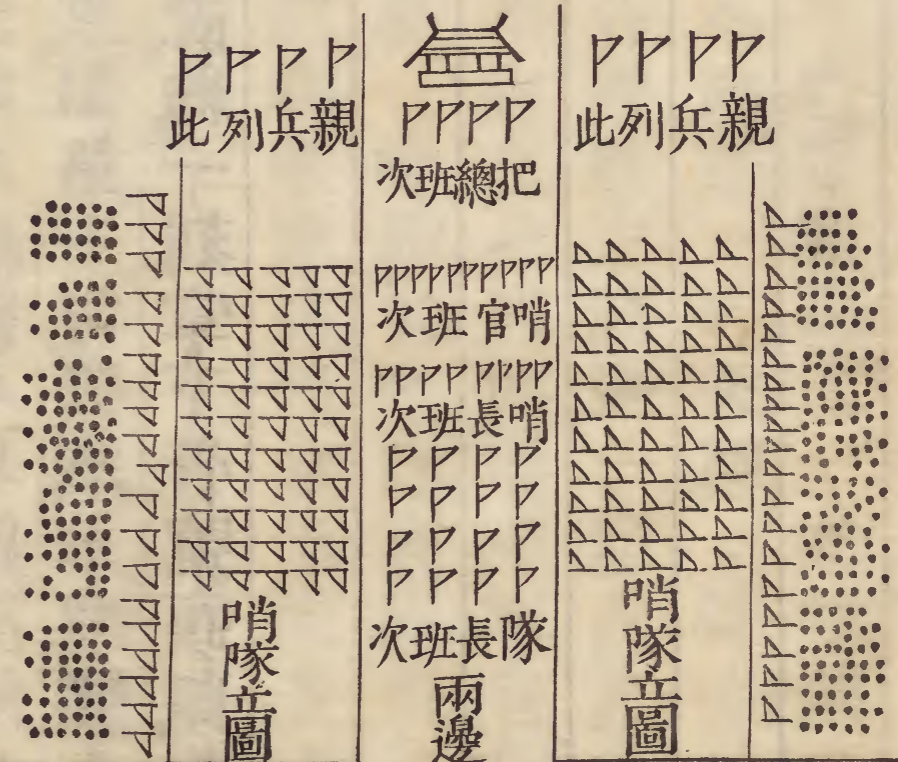 親兵列此
哨隊立圖
把總班次
哨官班次
哨長班次
隊長班次
兩邊
親兵列此
哨隊立圖